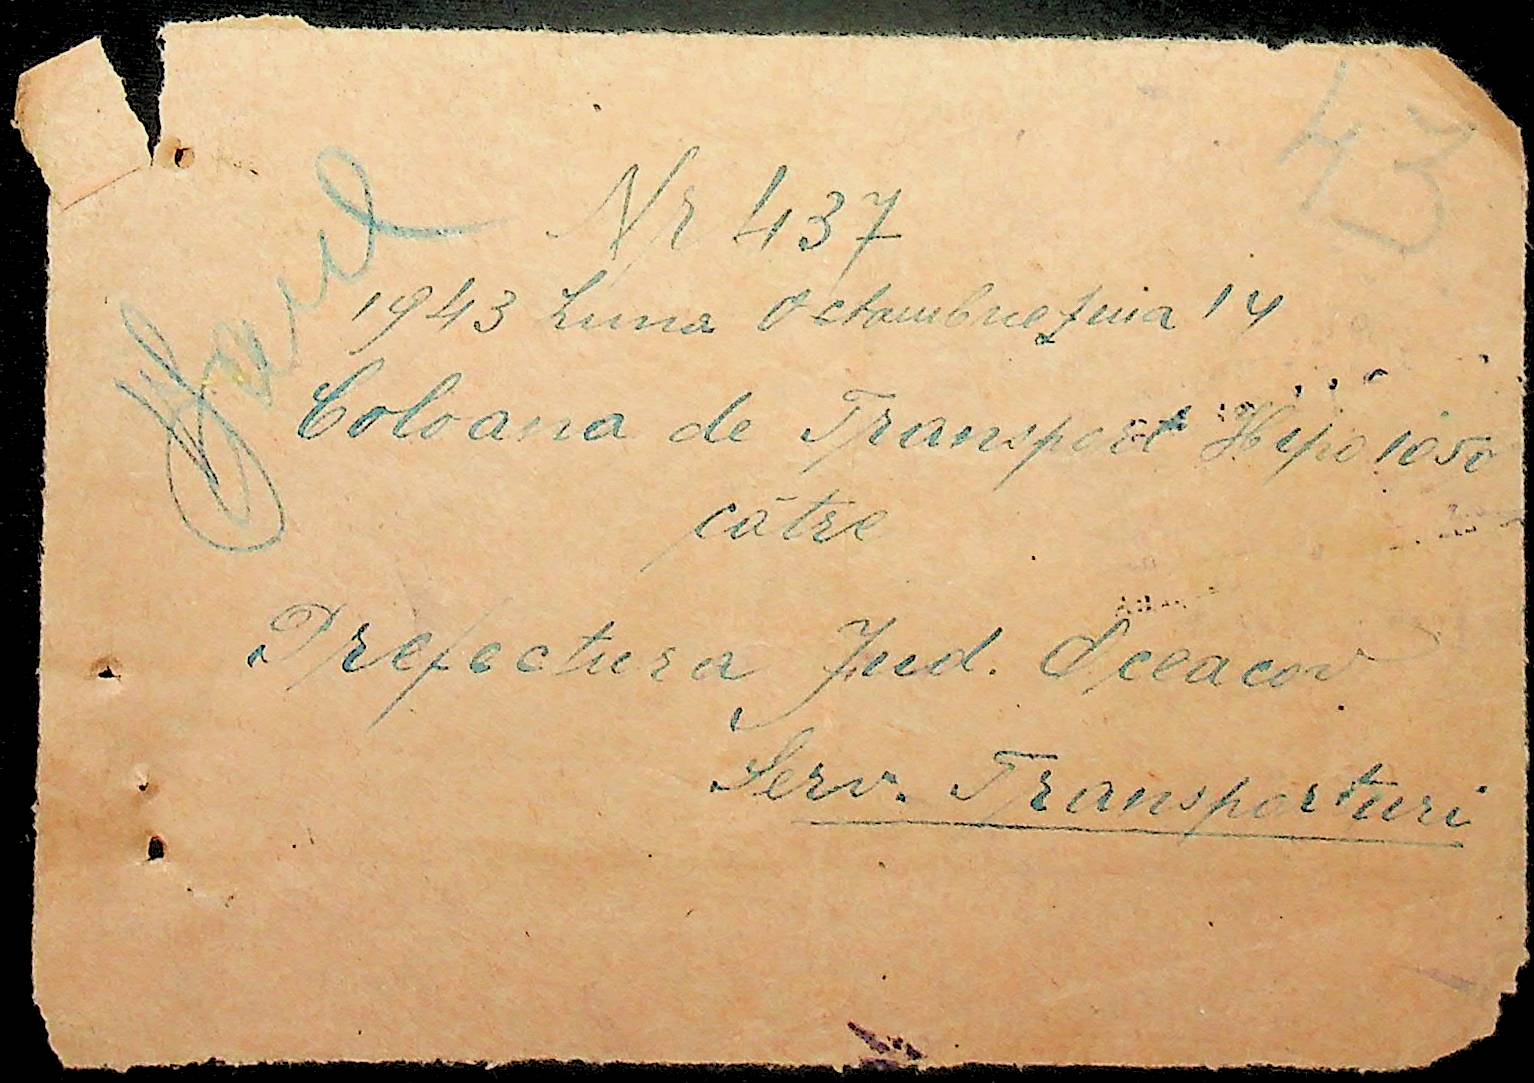 43
Nr 437
1943 Luna Octombrie Ziua 14
Coloana de Transport Hipo 1050
către
Prefectura Jud. Oceacov
Serv. Transporturi